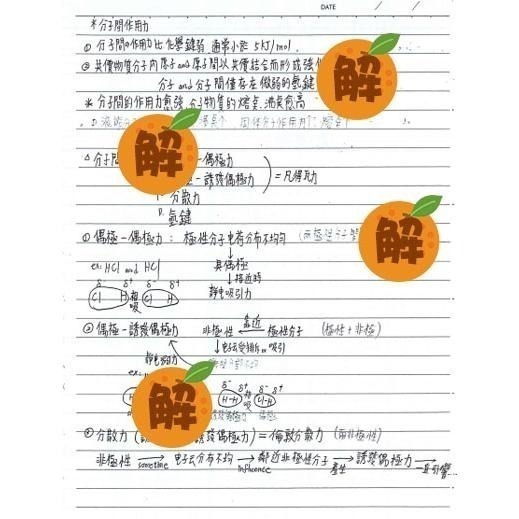 DATE / /
*分子間作用力
① 分子間の作用力比化學鍵弱 通常小於 5 kJ/mol.
② 共價物質分子內原子and原子間以共價結合而形成強
解
分子 and 分子間僅存在微弱的氫鍵
* 分子間的作用力愈強,分子物質的熔點、沸點愈高
解
△ 分子間 偶極力
誘發偶極力 = 凡得瓦力
分散力
氫鍵
解
① 偶極-偶極力: 極性分子電荷分布不均勻
ex: HCl and HCl 具偶極
↓接近時
δ⁻ δ⁺ δ⁻ δ⁺ 靜電吸引力
Cl H 相吸 Cl H
② 偶極-誘發偶極力 非極性 ←靠近 極性分子 (極性+非極)
靜電引力
ex:
解
δ⁻ δ⁺ 相吸 δ⁻ δ⁺
H-H Cl-H
分散力 誘發偶極力) = 倫敦分散力 (兩非極性)
非極性 → sometime 電子云分布不均 → influence 鄰近非極性分子 → 產生 誘發偶極力 →